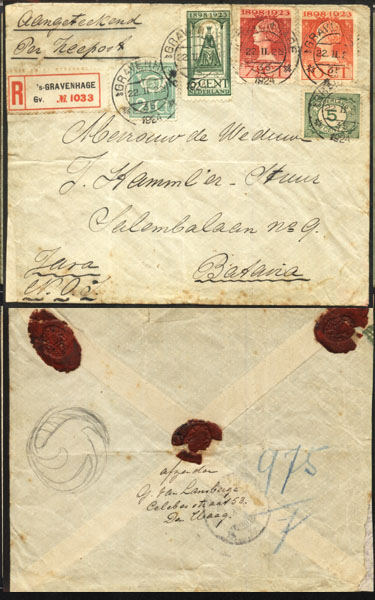 Aangeteekend
Per Zeepost
R
's-GRAVENHAGE
Gv. № 1033
1898-1923
5 CENT
NEDERLAND
1898-1923
1898-1923
5
1924
1924
Mevrouw de Weduwe
J. Hamml'er-Stuur
Salembalaan no 9.
Batavia
Java
N.O.I
975
7
afzender
G. van Lansberge
Celebesstraat 53.
Den Haag